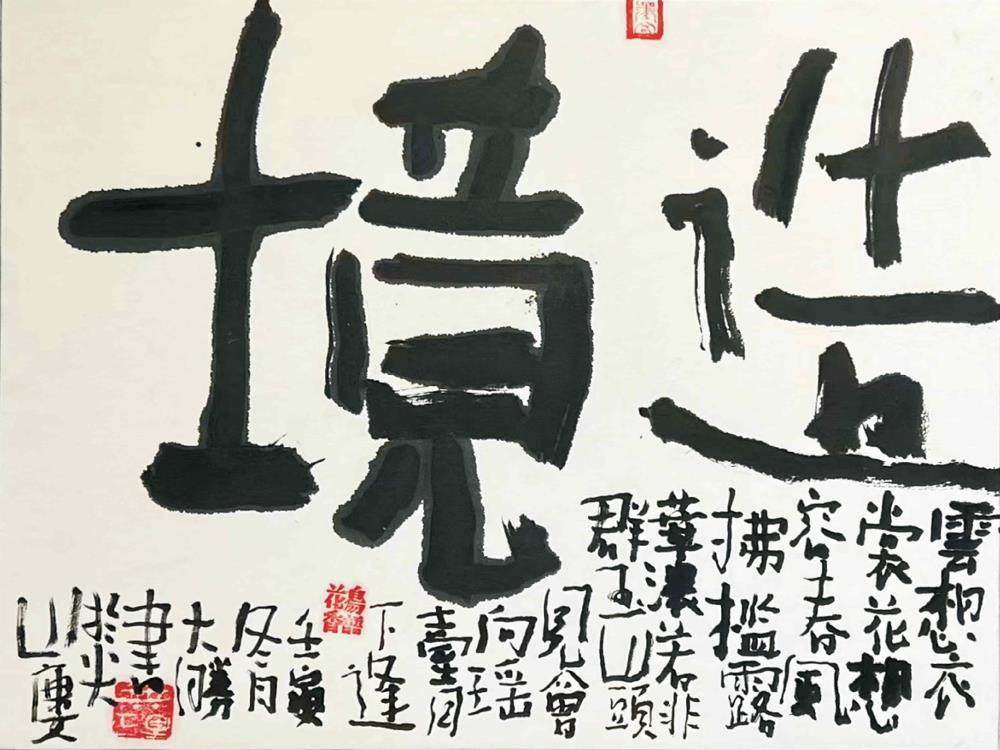 造境
雲想衣
裳花想
容春風
拂檻露
華濃若非
群玉山頭
見會
向瑶
臺月
下逢
鳥語
花香
壬寅
冬月
大勝
書
於尖
山廔